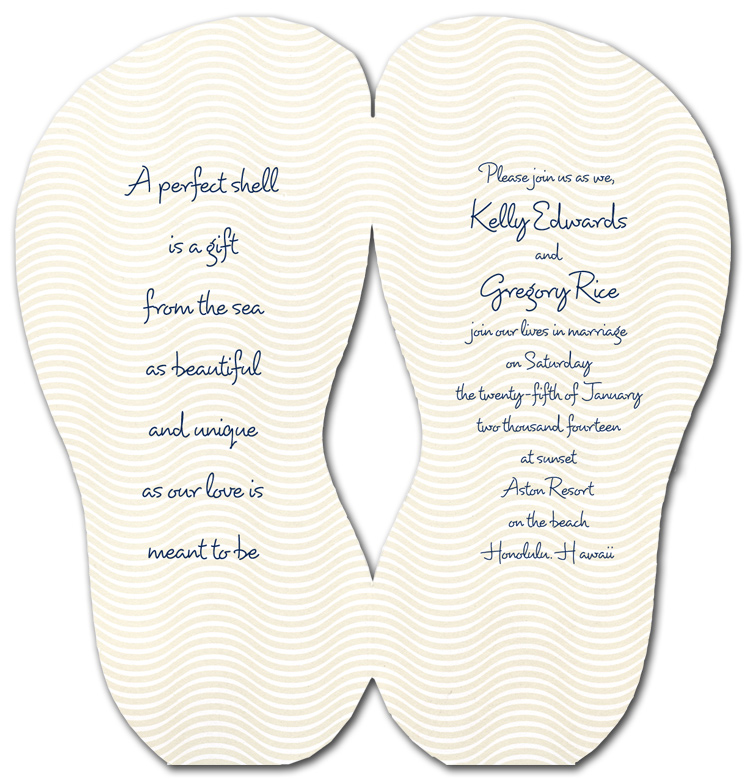 A perfect shell
is a gift
from the sea
as beautiful
and unique
as our love is
meant to be
Please join us as we,
Kelly Edwards
and
Gregory Rice
join our lives in marriage
on Saturday
the twenty-fifth of January
two thousand fourteen
at sunset
Aston Resort
on the beach
Honolulu, Hawaii